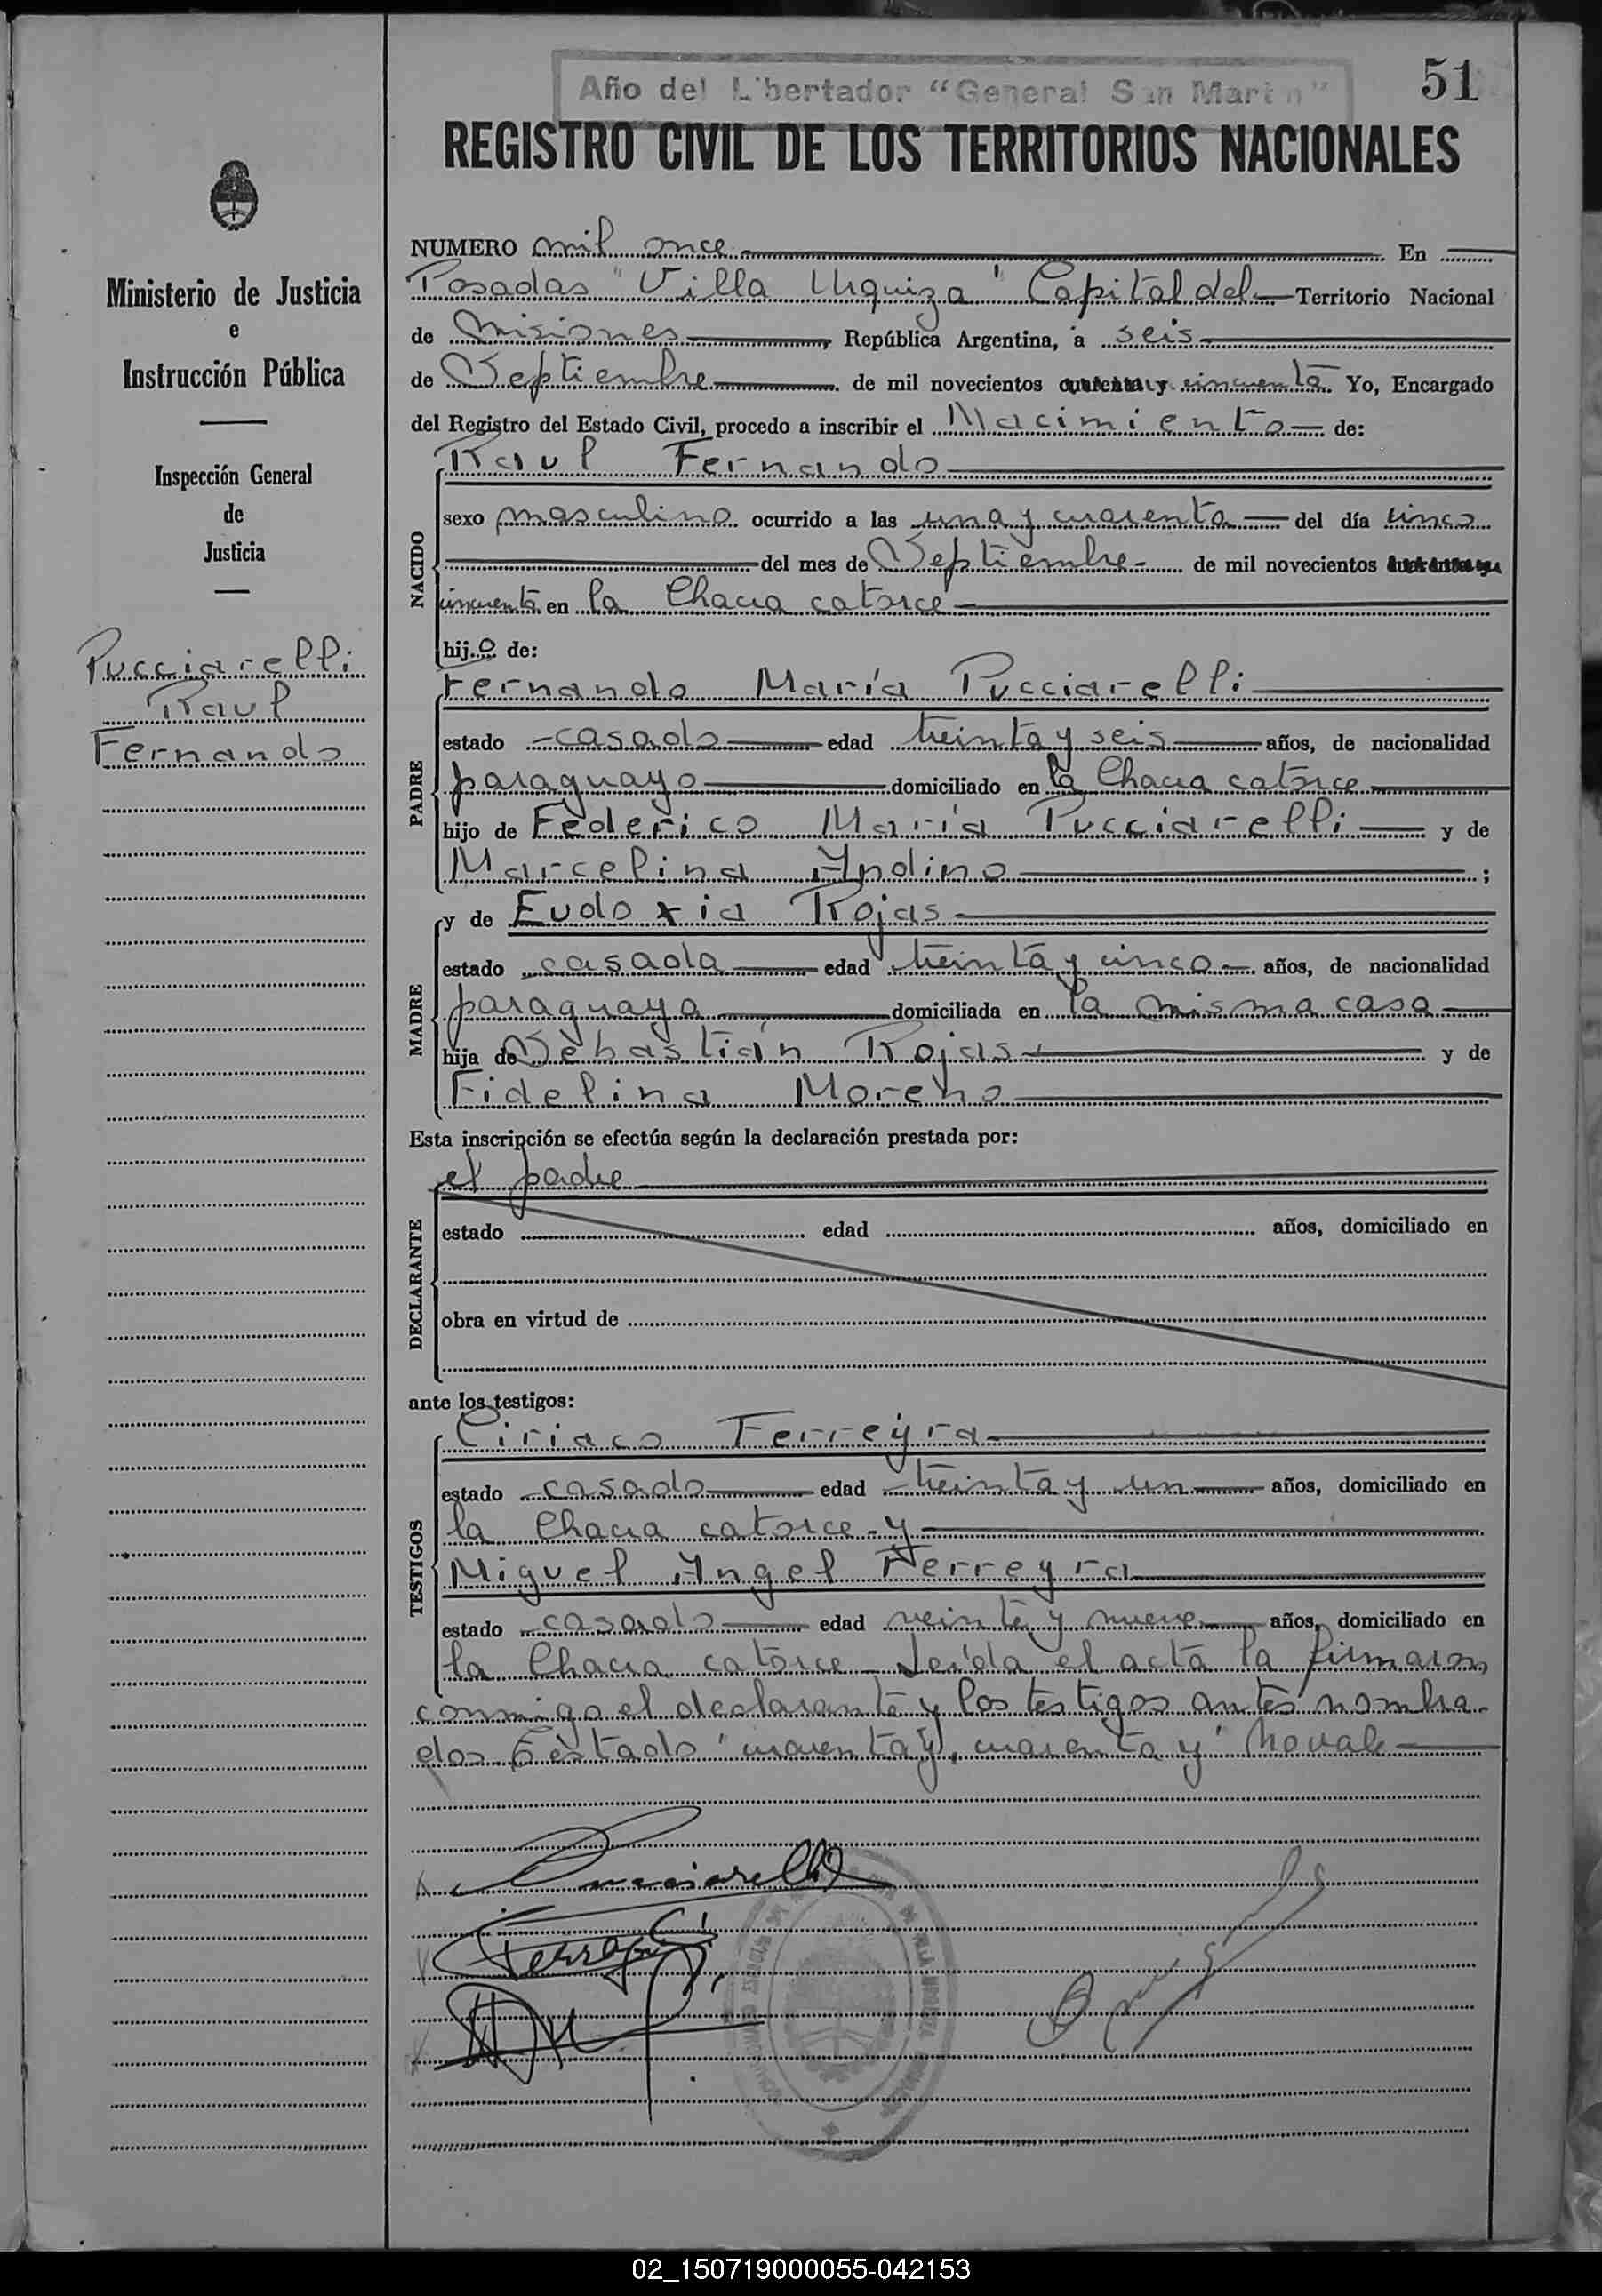 Año del Libertador "General San Martín"
51
REGISTRO CIVIL DE LOS TERRITORIOS NACIONALES
Ministerio de Justicia
e
Instrucción Pública
Inspección General
de
Justicia
Pucciarelli
Raul
Fernando
NUMERO mil once En
Posadas "Villa Urquiza" Capital del Territorio Nacional
de Misiones, República Argentina, a seis
de Septiembre de mil novecientos cuarenta y cincuenta Yo, Encargado
del Registro del Estado Civil, procedo a inscribir el Nacimiento de:
NACIDO
Raul Fernando
sexo masculino ocurrido a las una y cuarenta del día cinco
del mes de Septiembre de mil novecientos cuarenta y
cincuenta en la Chacra catorce
hijo de:
PADRE
Fernando María Pucciarelli
estado casado edad treinta y seis años, de nacionalidad
paraguayo domiciliado en la Chacra catorce
hijo de Federico María Pucciarelli y de
Marcelina Andino ;
MADRE
y de Eudoxia Rojas
estado casada edad treinta y cinco años, de nacionalidad
paraguaya domiciliada en la misma casa
hija de Sebastián Rojas y de
Fidelina Moreno
Esta inscripción se efectúa según la declaración prestada por:
DECLARANTE
el padre
estado edad años, domiciliado en
obra en virtud de
ante los testigos:
TESTIGOS
Ciriaco Ferreyra
estado casado edad treinta y un años, domiciliado en
la Chacra catorce y
Miguel Angel Ferreyra
estado casado edad veinte y nueve años, domiciliado en
la Chacra catorce Leída el acta la firmaron
conmigo el declarante y los testigos antes nombra-
dos Testado "cuarenta y, cuarenta y" No vale
Pucciarelli
02_150719000055-042153